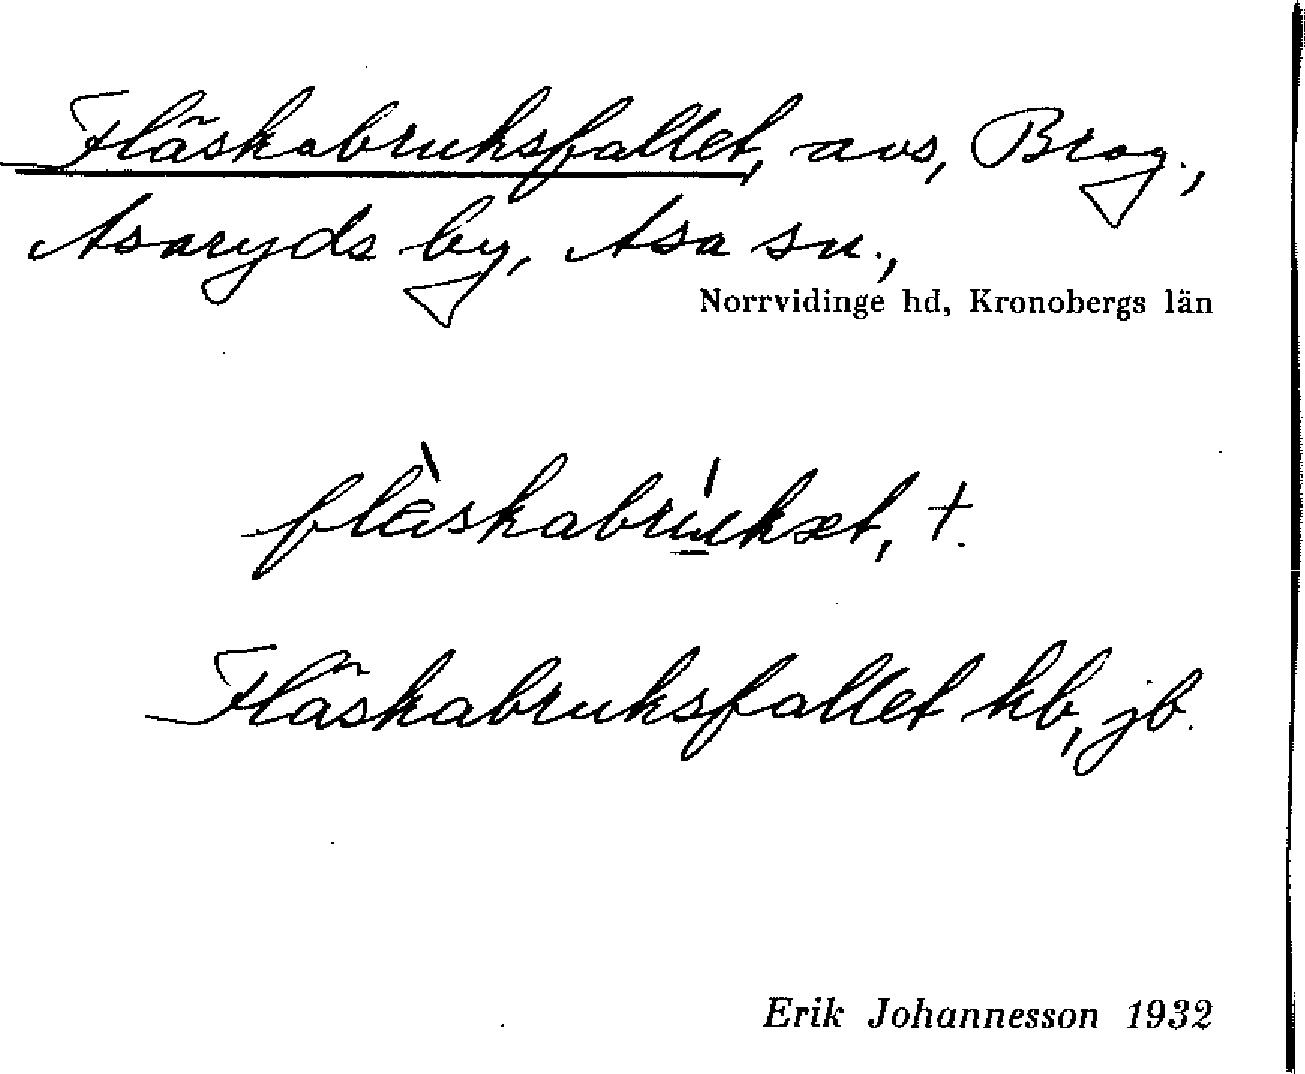 Fläskabruksfallet, avs, Brog.,
Asaryds by, Asa sn.,
Norrvidinge hd, Kronobergs län
flàskabrúkæt, †.
Fläskabruksfallet kb, jb.
Erik Johannesson 1932